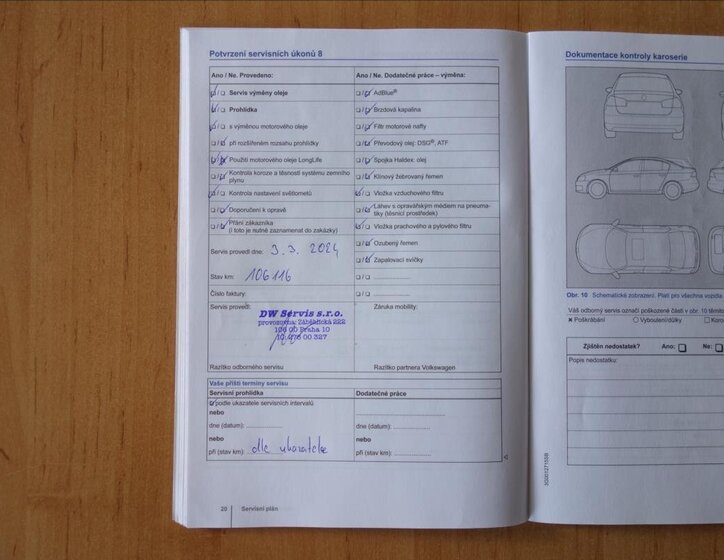 Potvrzení servisních úkonů 8
Ano / Ne. Provedeno:
Servis výměny oleje
Prohlídka
s výměnou motorového oleje
při rozšířeném rozsahu prohlídky
Použití motorového oleje LongLife
Kontrola koroze a těsnosti systému zemního
plynu
Kontrola nastavení světlometů
Doporučení k opravě
Přání zákazníka
(i toto je nutné zaznamenat do zakázky)
Ano / Ne. Dodatečné práce – výměna:
AdBlue®
Brzdová kapalina
Filtr motorové nafty
Převodový olej: DSG®, ATF
Spojka Haldex: olej
Klínový žebrovaný řemen
Vložka vzduchového filtru
Láhev s opravářským médiem na pneuma-
tiky (těsnicí prostředek)
Vložka prachového a pylového filtru
Ozubený řemen
Zapalovací svíčky
Servis provedl dne: 3.3.2024
Stav km: 106116
Číslo faktury:
Servis provedl:
DW Servis s.r.o.
provozovna: Záběhlická 222
106 00 Praha 10
Razítko odborného servisu
Záruka mobility:
Razítko partnera Volkswagen
Vaše příští termíny servisu
Servisní prohlídka
podle ukazatele servisních intervalů
nebo
dne (datum):
nebo
při (stav km): dle ukazatele
Dodatečné práce
dne (datum):
nebo
při (stav km):
20 Servisní plán
Dokumentace kontroly karoserie
Obr. 10 Schematické zobrazení. Platí pro všechna vozidla
Váš odborný servis označí poškozené části v obr. 10 těmito
Poškrábání
Vyboulení/důlky
Zjištěn nedostatek? Ano: Ne:
Popis nedostatku: